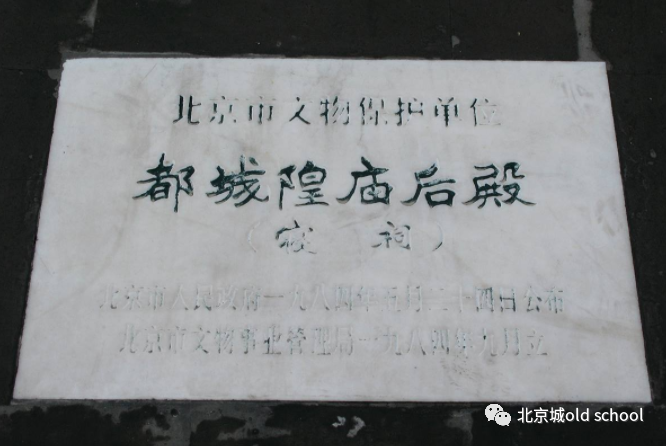 北京市文物保护单位
都城隍庙后殿
（寝 祠）
北京市人民政府一九八四年五月二十四日公布
北京市文物事业管理局一九八四年九月立
北京城old school